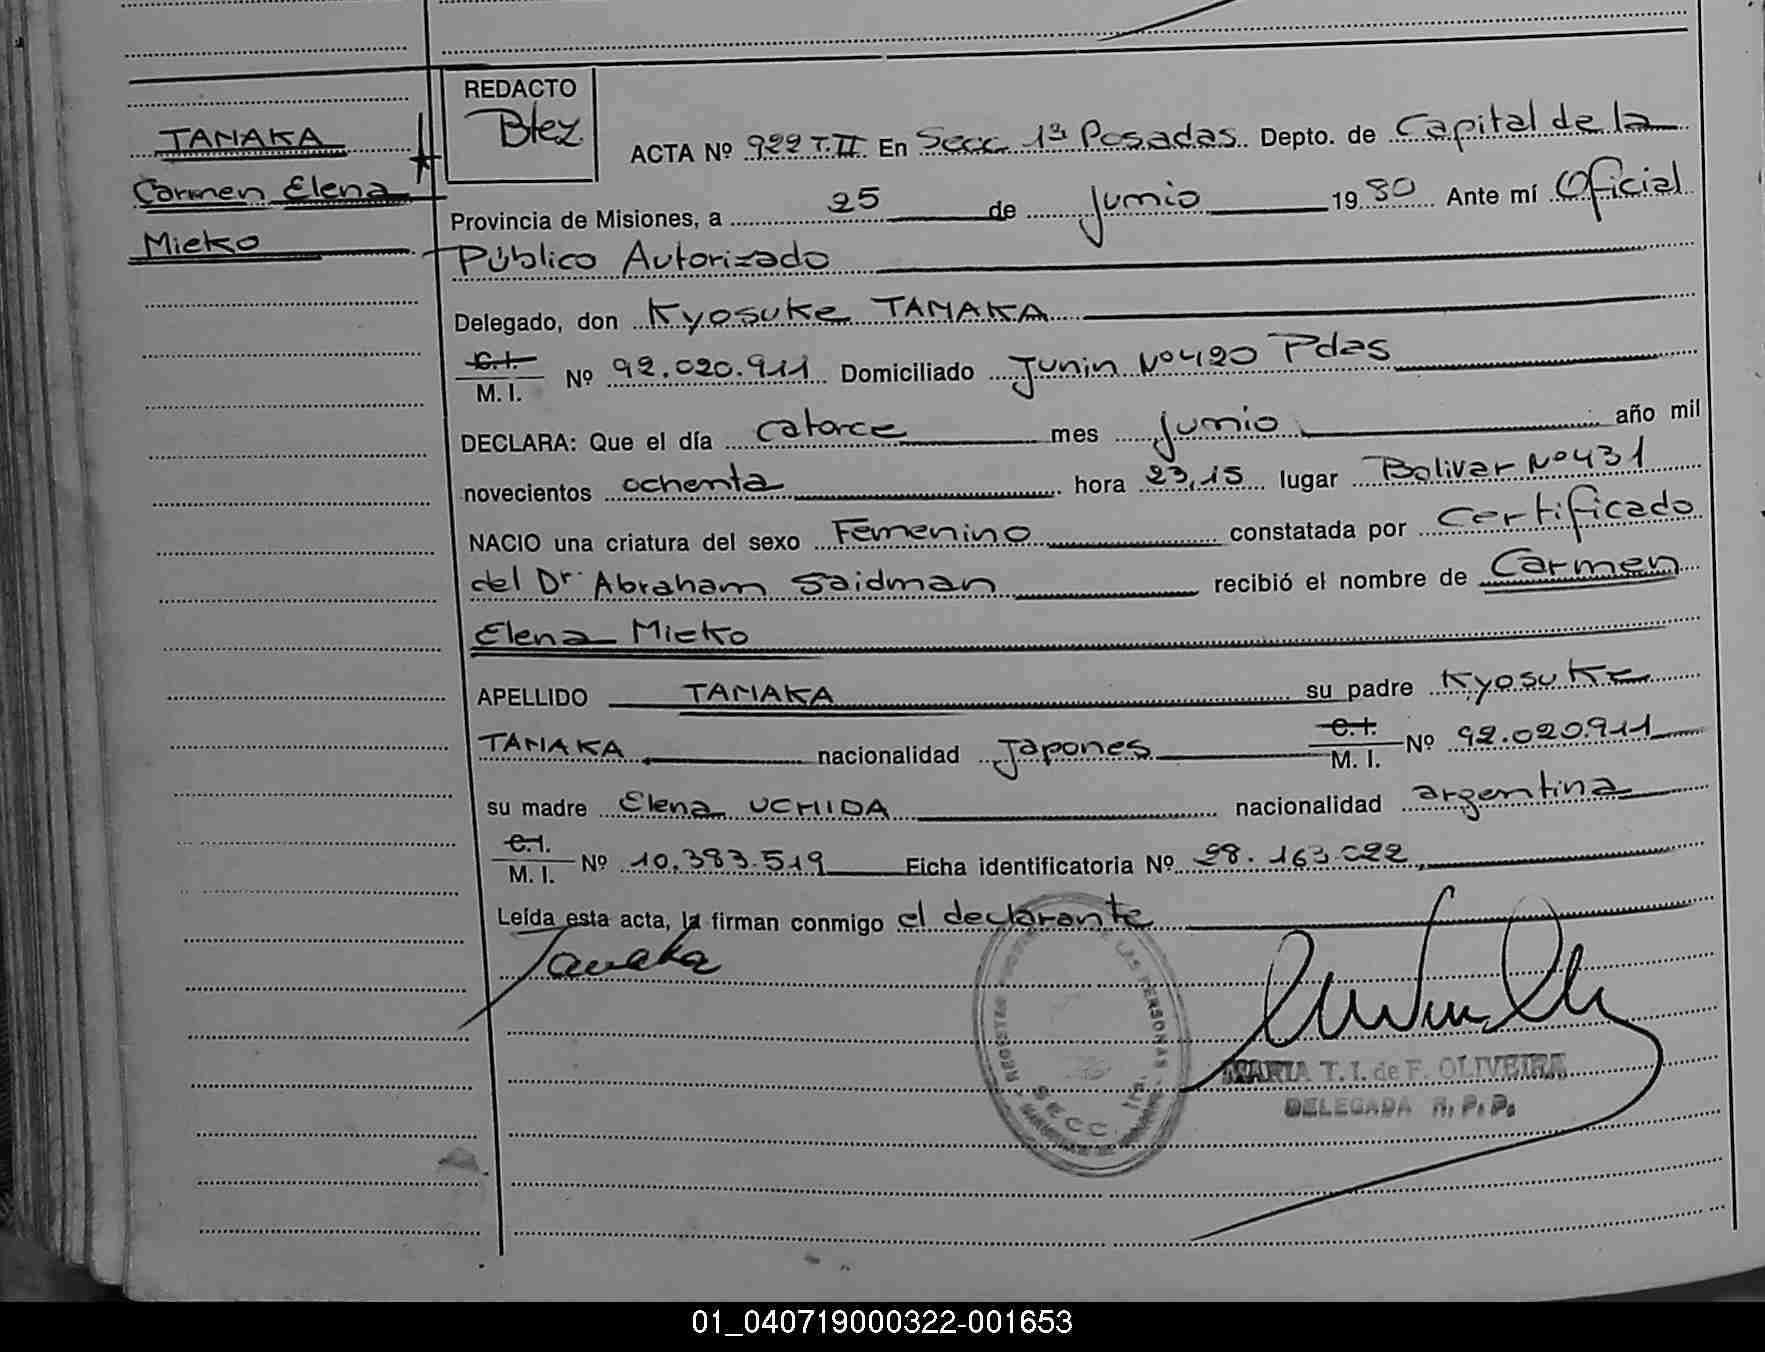 TANAKA
Carmen Elena
Mieko
REDACTO
Btez
ACTA Nº 922 T.II En Secc. 1ª Posadas. Depto. de Capital de la
Provincia de Misiones, a 25 de junio 1980 Ante mí Oficial
Público Autorizado
Delegado, don Kyosuke TANAKA
C.I.
M. I. Nº 92.020.911 Domiciliado Junin Nº 420 Pdas
DECLARA: Que el día catorce mes junio año mil
novecientos ochenta hora 23,15 lugar Bolivar Nº 431
NACIO una criatura del sexo Femenino constatada por certificado
del Dr. Abraham Saidman recibió el nombre de Carmen
Elena Mieko
APELLIDO TANAKA su padre Kyosuke
TANAKA nacionalidad Japones C.I. M. I. Nº 92.020.911
su madre Elena UCHIDA nacionalidad argentina
C.I.
M. I. Nº 10.383.519 Ficha identificatoria Nº 28.163.022
Leída esta acta, la firman conmigo el declarante
Tanaka
LAS PERSONAS
SECC. 1ra.
MARIA T. I. de F. OLIVEIRA
DELEGADA R. P. P.
01_040719000322-001653